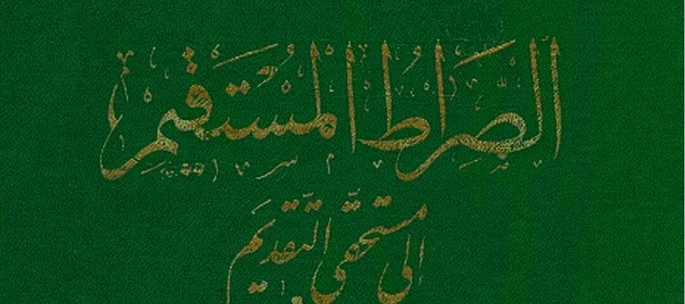 الصراط المستقيم
الى مستحقي التقديم